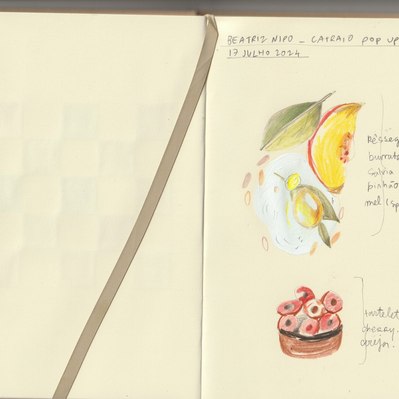 BEATRIZ NIPO - CATRAIO POP UP
17 JULHO 2024
Pêsseg
burrata
salva
pinhão
mel (sp
tartelet
cheesy.
cereja.